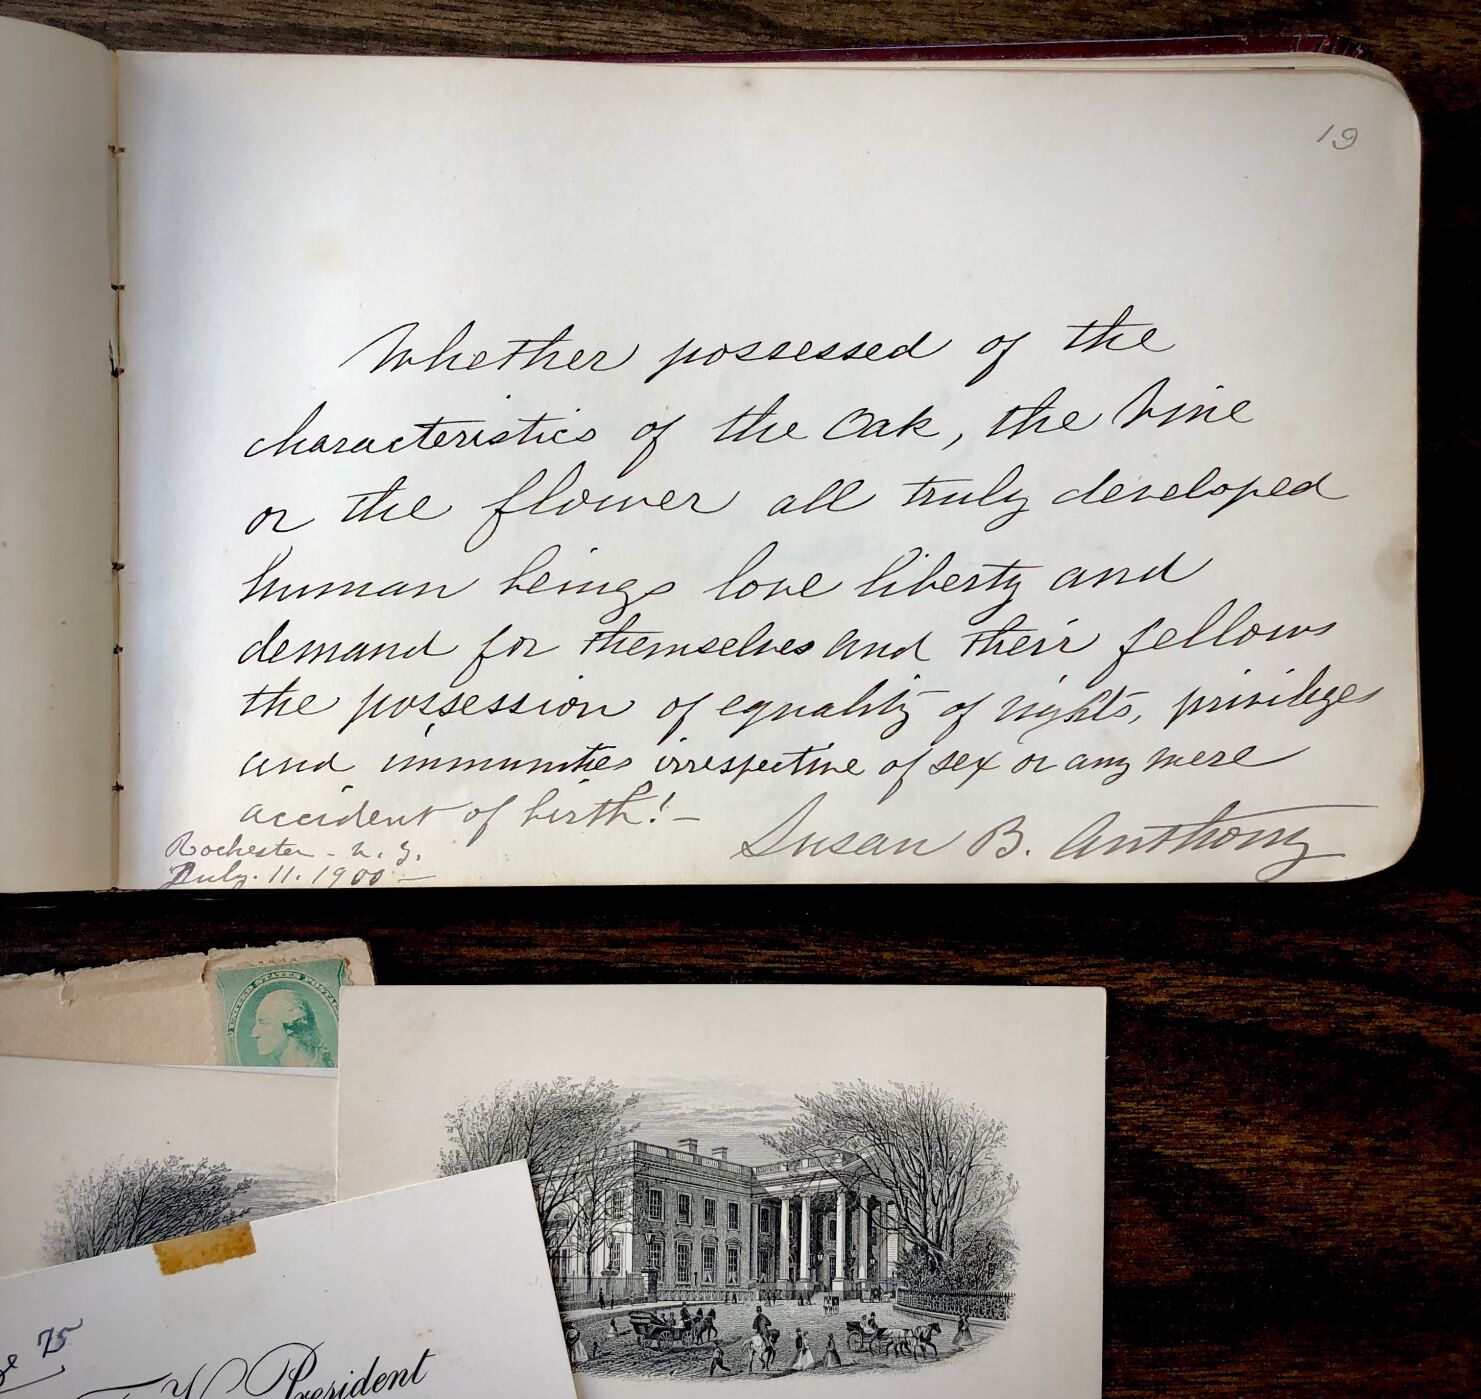 19
Whether possessed of the
characteristics of the Oak, the Vine
or the flower all truly developed
human beings love liberty and
demand for themselves and their fellows
the possession of equality of rights, privileges
and immunities irrespective of sex or any mere
accident of birth! –
Susan B. Anthony
Rochester - N. Y.
July. 11. 1900 –
UNITED STATES POSTAGE
75
President